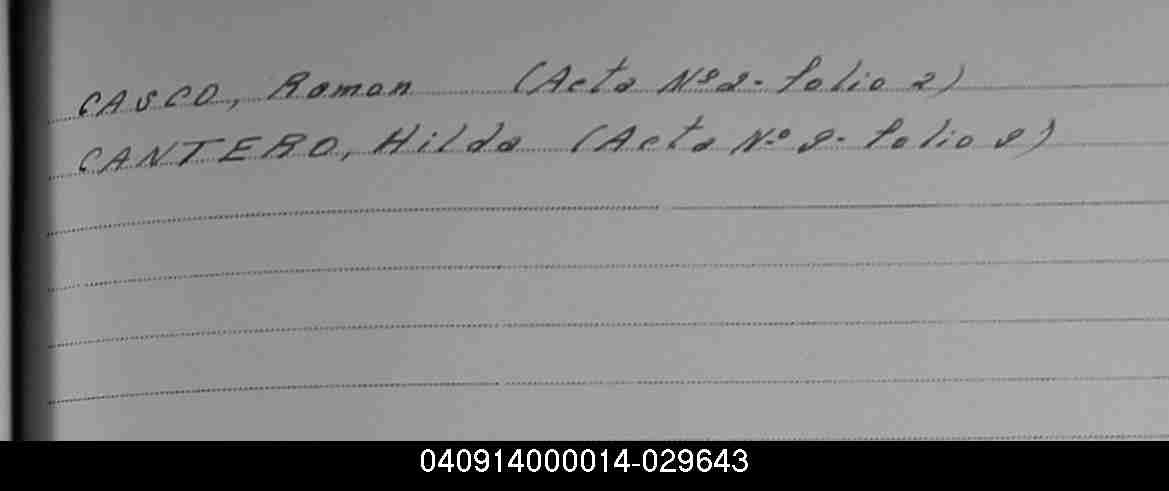 CASCO, Roman (Acta Nº 2- folio 2)
CANTERO, Hilda (Acta Nº 9- folio 9)
040914000014-029643